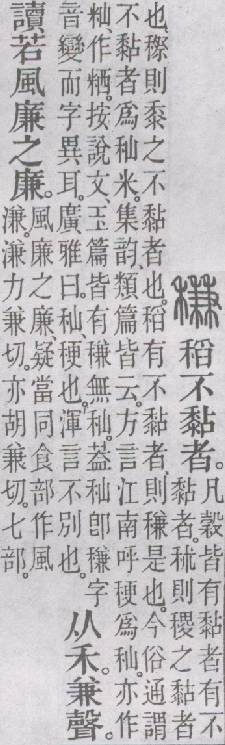 稴 稻不黏者。凡穀皆有黏者有不
黏者。秫則稷之黏者
也、穄則黍之不黏者也。稻有不黏者、則稴是也。今俗通謂
不黏者爲秈米。集韵、類篇皆云。方言江南呼稉爲秈。亦作
籼作粞。按說文、玉篇皆有稴無秈。葢秈卽稴字
音變而字異耳。廣雅曰。秈稉也。渾言不別也。
从禾。兼聲。
讀若風廉之廉。
風廉之廉、疑當同食部作風
溓。溓力兼切。亦胡兼切。七部。